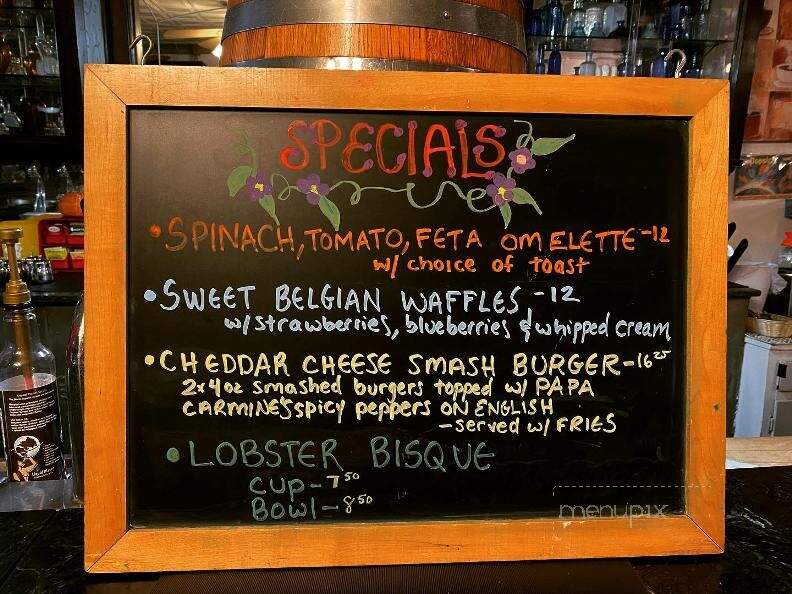 SPECIALS
• SPINACH, TOMATO, FETA OMELETTE -12
w/ choice of toast
• SWEET BELGIAN WAFFLES -12
w/ strawberries, blueberries & whipped cream
• CHEDDAR CHEESE SMASH BURGER -16 25
2x4oz smashed burgers topped w/ PAPA
CARMINES spicy peppers ON ENGLISH
- served w/ FRIES
• LOBSTER BISQUE
CUP - 7 50
BOWl - 8 50
menupix